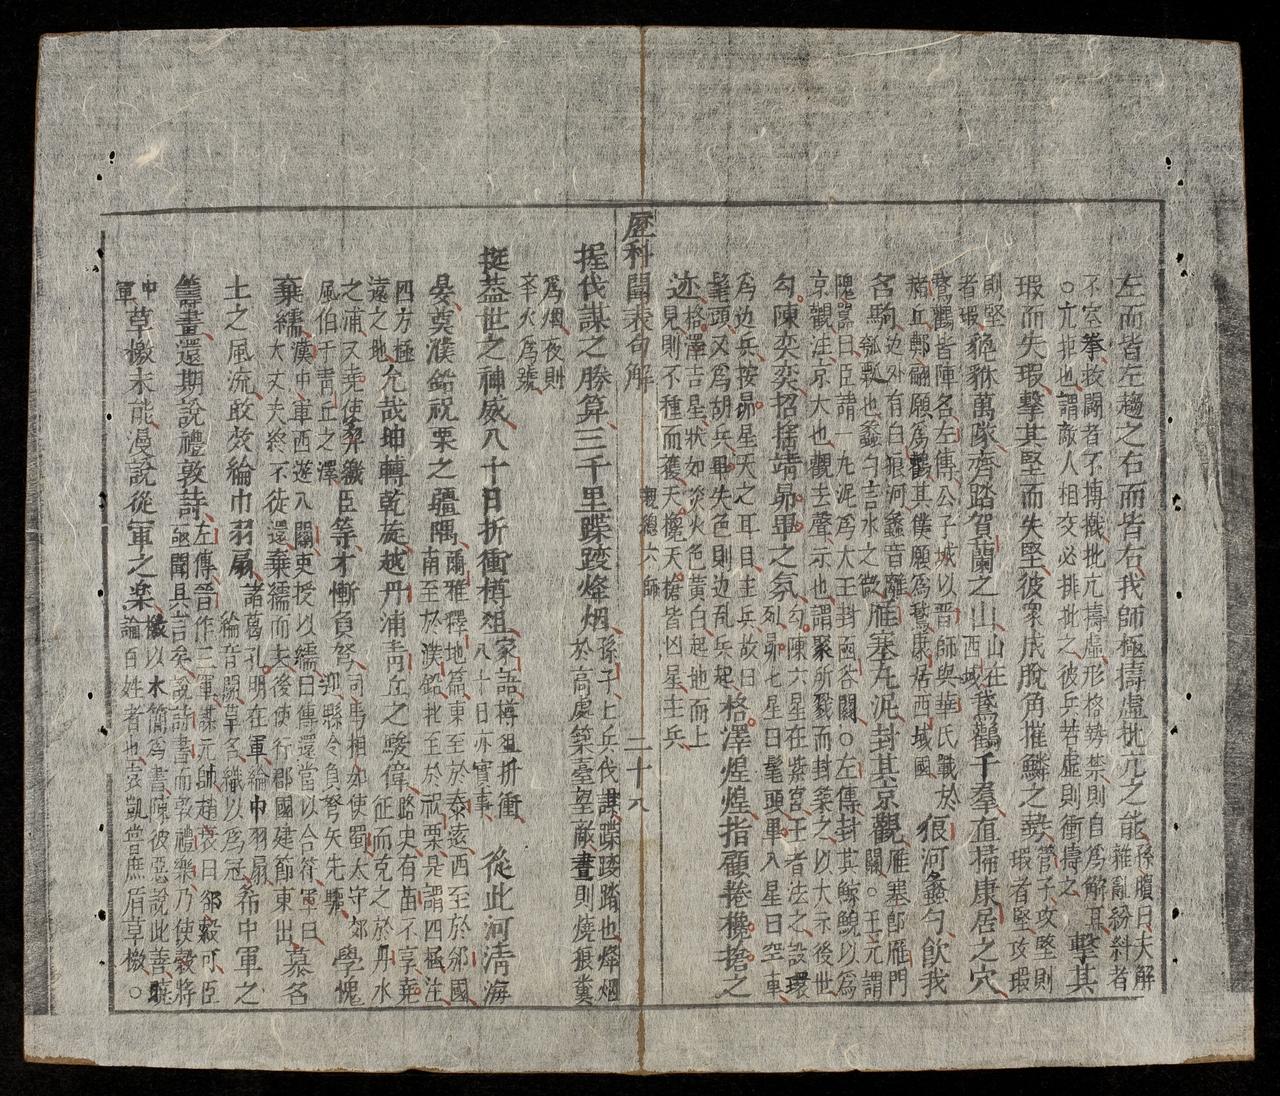 左而皆左趨之右而皆右我師極擣虛批亢之能孫臏曰夫解雜亂紛糾者
不空拳救鬪者不搏撠批亢擣虛形格勢禁則自為解耳
○亢拒也謂敵人相交必排批之彼兵若虛則衝擣之擊其
瑕而失瑕擊其堅而失堅彼衆成脫角摧鱗之勢管子攻堅則瑕者堅攻瑕
則堅者瑕貔貅萬隊齊踏賀蘭之山山在西域鵞鸛千羣直掃康居之穴
鵞鸛皆陣名左傳公子城以晋師與華氏戰於
赭丘鄭翩願為鸛其僕願為鵞康居西域國狼河蠡勺飲我
名駒边外有白狼河蠡音離瓠瓢也蠡勺言水之微雁塞丸泥封其京觀雁塞即雁門關○王元謂
隗囂曰臣請一丸泥為大王封函谷關○左傳封其鯨鯢以為
京觀注京大也觀去聲示也謂聚所戮而封築之以大示後世
勾陳奕奕招搖靖昴畢之氛勾陳六星在紫宮王者法之設環列昴七星曰髦頭畢八星曰空車
為边兵按昴星天之耳目主兵故曰
髦頭又為胡兵畢失色則边乱兵起格澤煌煌指顧捲欃搶之
迹格澤吉星狀如炎火色黃白起地而上
見則不種而穫天欃天槍皆凶星主兵
歷科閨表句解 二十八
握伐謀之勝算三千里蹀踆烽烟孫子上兵伐謀蹀踆踏也烽烟於高處築臺望敵晝則燒狼糞
為烟夜則
举火為號
挺蓋世之神威八十日折衝樽俎家語樽俎折衝八十日亦實事從此河淸海
晏奠濮鉛祝栗之疆隅爾雅釋地篇東至於泰遠西至於邠國南至於濮鉛北至於祝栗是謂四極注
四方極
遠之地允哉坤轉乾旋越丹浦靑丘之駿偉路史有苗不享堯征而克之於丹水
之浦又堯使羿繳
風伯于靑丘之澤臣等才慚負弩司馬相如使蜀太守郊迎縣令負弩矢先驅學愧
棄繻漢中軍西遊入關吏授以繻曰傳還當以合符軍曰
大丈夫終不徒還棄繻而去後使行郡國建節東出慕名
士之風流敢效綸巾羽扇諸葛孔明在軍綸巾羽扇綸音關草名織以為冠希中軍之
籌畫還期說禮敦詩左傳晉作三軍謀元帥趙衰曰郤縠可臣亟聞其言矣說詩書而敦禮樂乃使縠將
中軍草檄未能漫說從軍之楽檄以木簡為書陳彼惡說此善曉諭百姓者也袁凱嘗庶盾草檄○